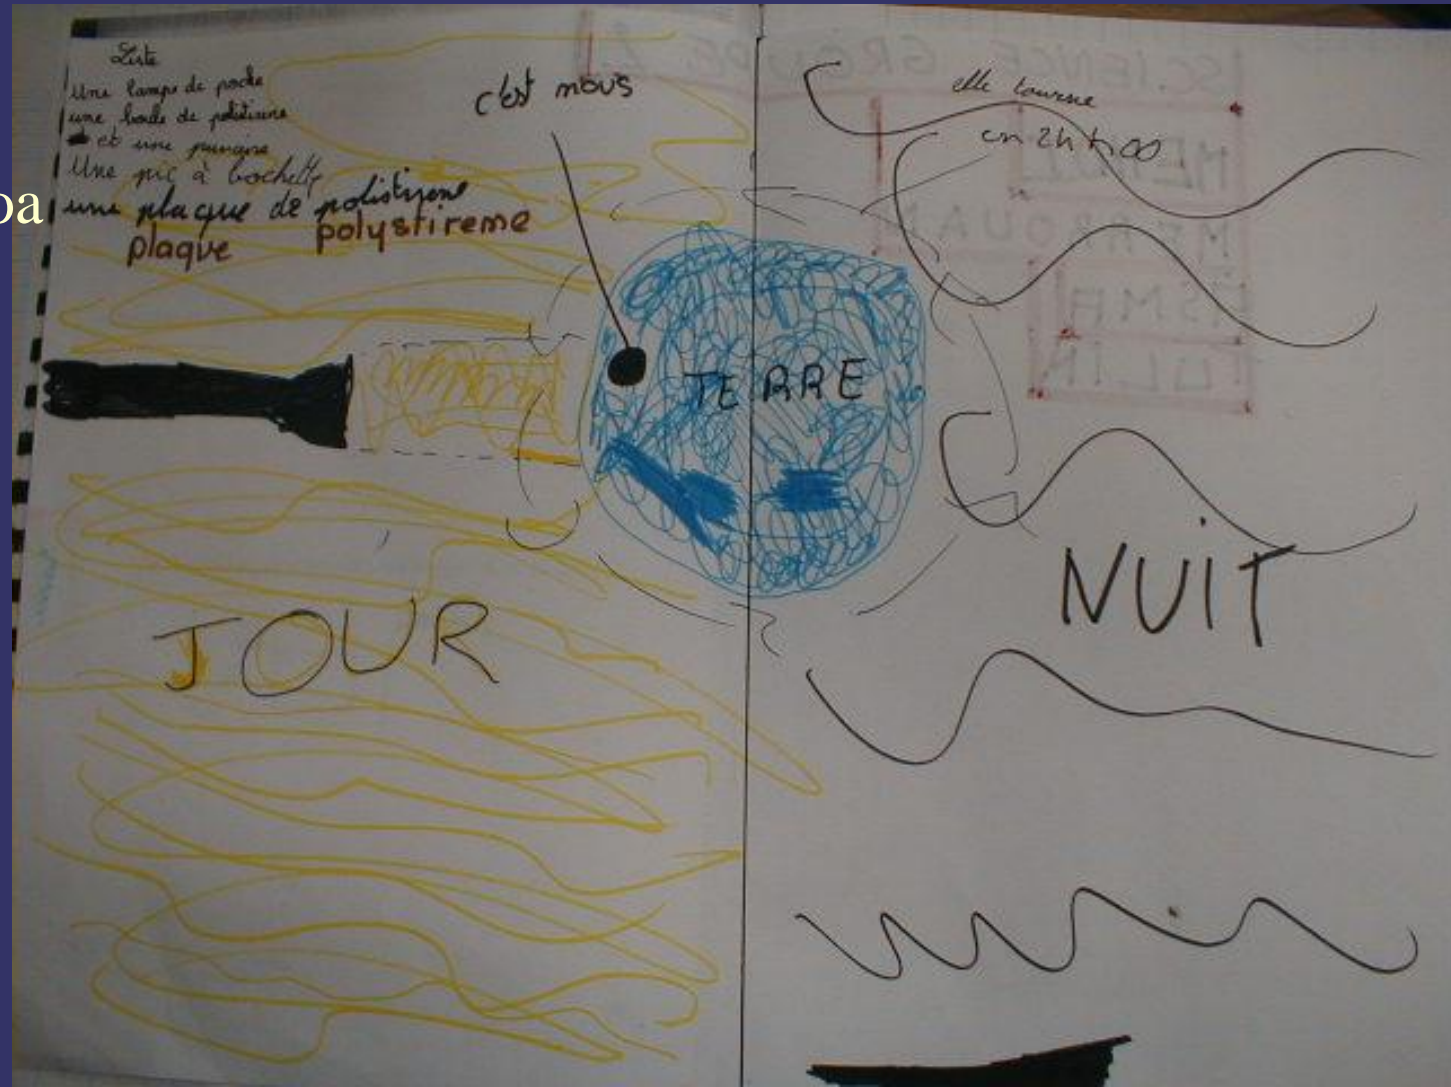 Liste
Une lampe de poche
une boule de polistirene
et une punaise
Une pic à brochette
une plaque de polistirene
plaque polystireme
c'est nous
elle tourne
en 24h00
TERRE
JOUR
NUIT
SCIENCE GROUPE 2
pa